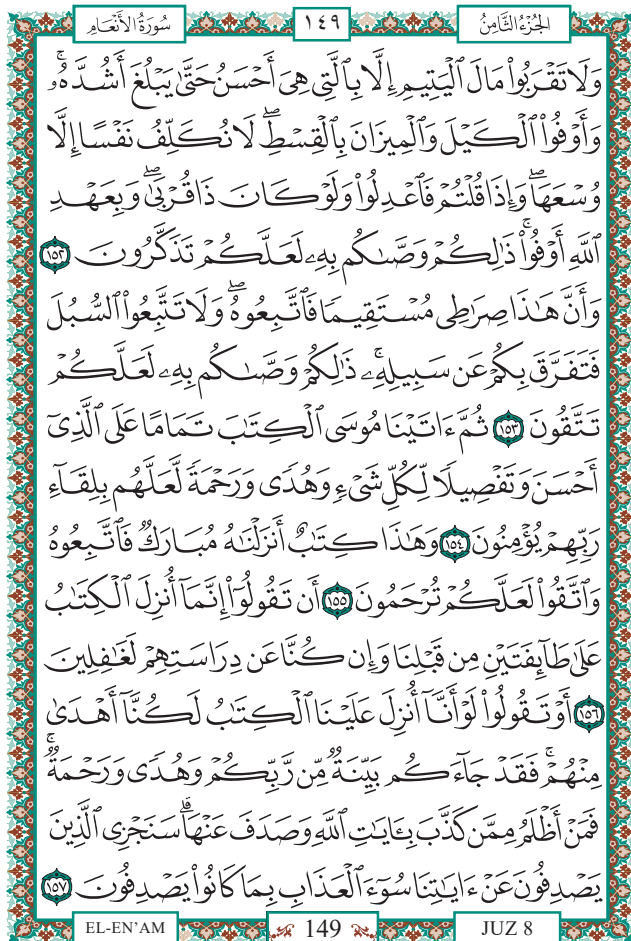 سُورَةُ الأَنْعَامِ ١٤٩ الجُزْءُ الثَّامِنُ
وَلَا تَقْرَبُوا۟ مَالَ ٱلْيَتِيمِ إِلَّا بِٱلَّتِى هِىَ أَحْسَنُ حَتَّىٰ يَبْلُغَ أَشُدَّهُۥۚ
وَأَوْفُوا۟ ٱلْكَيْلَ وَٱلْمِيزَانَ بِٱلْقِسْطِۖ لَا نُكَلِّفُ نَفْسًا إِلَّا
وُسْعَهَاۖ وَإِذَا قُلْتُمْ فَٱعْدِلُوا۟ وَلَوْ كَانَ ذَا قُرْبَىٰۖ وَبِعَهْدِ
ٱللَّهِ أَوْفُوا۟ۚ ذَٰلِكُمْ وَصَّىٰكُم بِهِۦ لَعَلَّكُمْ تَذَكَّرُونَ ١٥٢
وَأَنَّ هَٰذَا صِرَٰطِى مُسْتَقِيمًا فَٱتَّبِعُوهُۖ وَلَا تَتَّبِعُوا۟ ٱلسُّبُلَ
فَتَفَرَّقَ بِكُمْ عَن سَبِيلِهِۦۚ ذَٰلِكُمْ وَصَّىٰكُم بِهِۦ لَعَلَّكُمْ
تَتَّقُونَ ١٥٣ ثُمَّ ءَاتَيْنَا مُوسَى ٱلْكِتَٰبَ تَمَامًا عَلَى ٱلَّذِىٓ
أَحْسَنَ وَتَفْصِيلًا لِّكُلِّ شَىْءٍ وَهُدًى وَرَحْمَةً لَّعَلَّهُم بِلِقَآءِ
رَبِّهِمْ يُؤْمِنُونَ ١٥٤ وَهَٰذَا كِتَٰبٌ أَنزَلْنَٰهُ مُبَارَكٌ فَٱتَّبِعُوهُ
وَٱتَّقُوا۟ لَعَلَّكُمْ تُرْحَمُونَ ١٥٥ أَن تَقُولُوٓا۟ إِنَّمَآ أُنزِلَ ٱلْكِتَٰبُ
عَلَىٰ طَآئِفَتَيْنِ مِن قَبْلِنَا وَإِن كُنَّا عَن دِرَاسَتِهِمْ لَغَٰفِلِينَ
١٥٦ أَوْ تَقُولُوا۟ لَوْ أَنَّآ أُنزِلَ عَلَيْنَا ٱلْكِتَٰبُ لَكُنَّآ أَهْدَىٰ
مِنْهُمْۚ فَقَدْ جَآءَكُم بَيِّنَةٌ مِّن رَّبِّكُمْ وَهُدًى وَرَحْمَةٌۚ
فَمَنْ أَظْلَمُ مِمَّن كَذَّبَ بِـَٔايَٰتِ ٱللَّهِ وَصَدَفَ عَنْهَاۗ سَنَجْزِى ٱلَّذِينَ
يَصْدِفُونَ عَنْ ءَايَٰتِنَا سُوٓءَ ٱلْعَذَابِ بِمَا كَانُوا۟ يَصْدِفُونَ ١٥٧
EL-EN’AM 149 JUZ 8